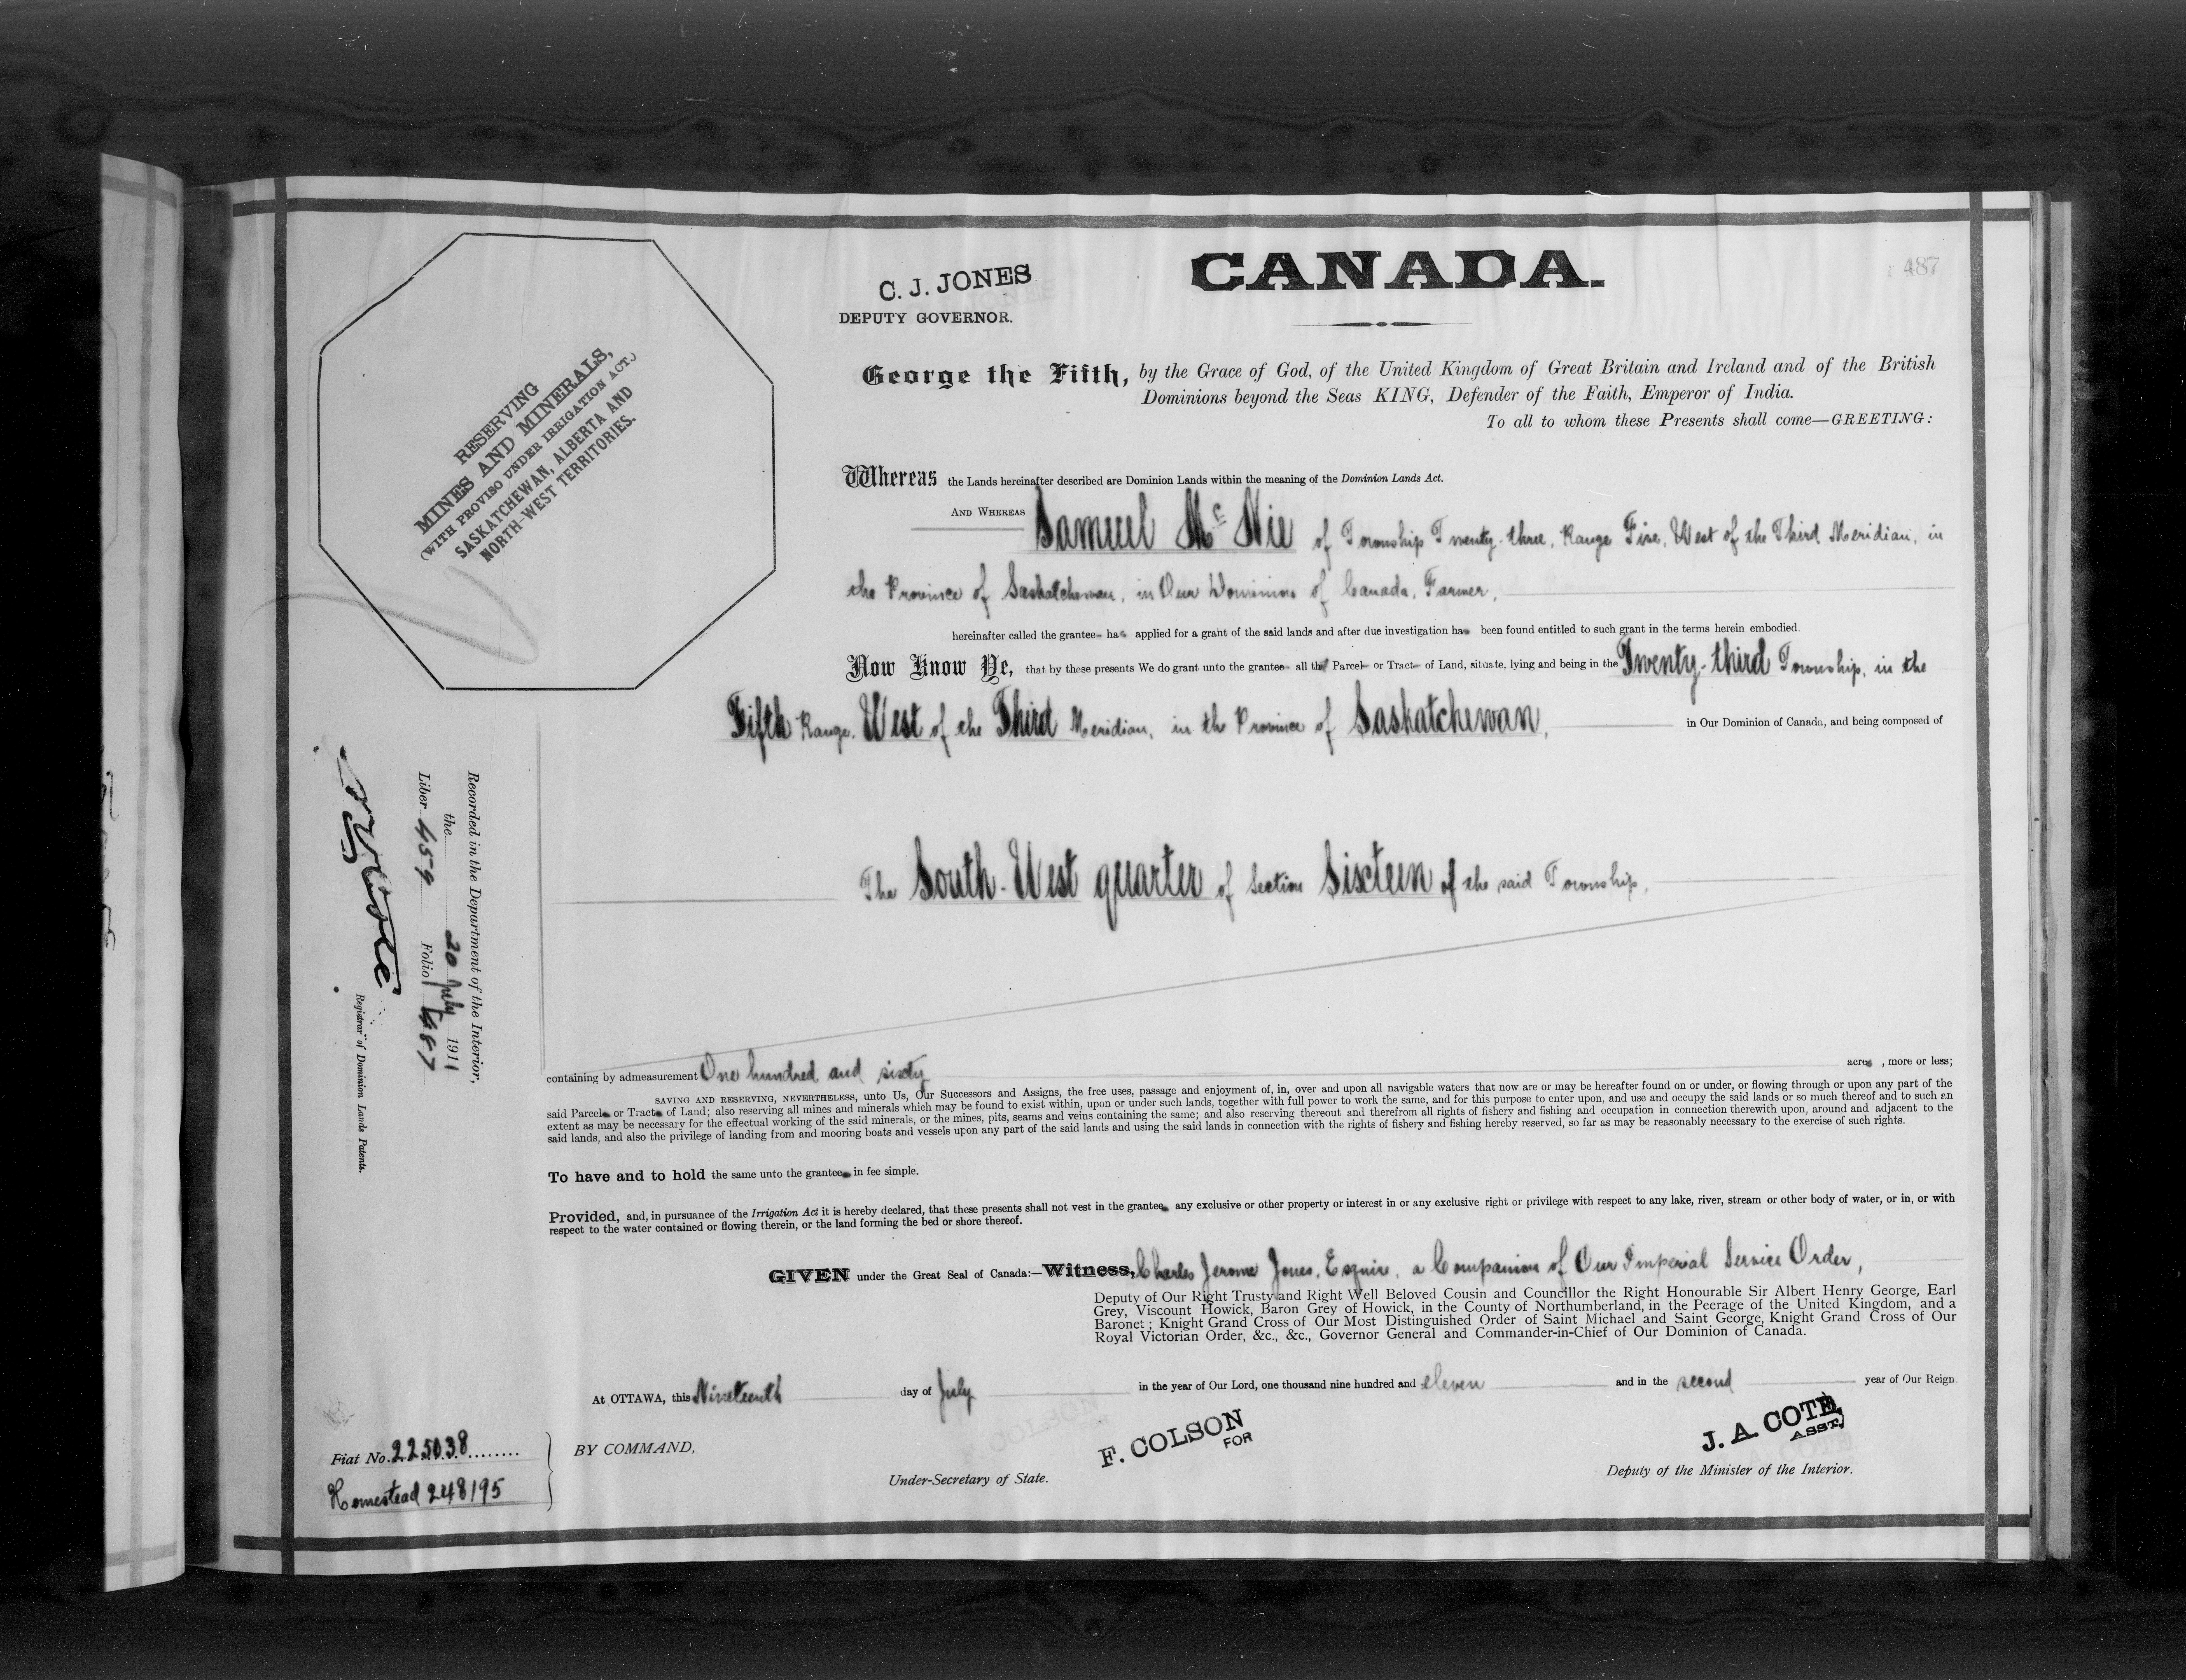 487
C. J. JONES
DEPUTY GOVERNOR.
CANADA.
RESERVING
MINES AND MINERALS,
(WITH PROVISO UNDER IRRIGATION ACT.)
SASKATCHEWAN, ALBERTA AND
NORTH-WEST TERRITORIES.
George the Fifth, by the Grace of God, of the United Kingdom of Great Britain and Ireland and of the British
Dominions beyond the Seas KING, Defender of the Faith, Emperor of India.
To all to whom these Presents shall come—GREETING:
Whereas the Lands hereinafter described are Dominion Lands within the meaning of the Dominion Lands Act.
AND WHEREAS Samuel Mc Nie of Township Twenty-three, Range Five, West of the Third Meridian, in
the Province of Saskatchewan, in Our Dominion of Canada, Farmer,
hereinafter called the grantee has applied for a grant of the said lands and after due investigation has been found entitled to such grant in the terms herein embodied.
Now Know Ye, that by these presents We do grant unto the grantee all that Parcel or Tract of Land, situate, lying and being in the Twenty-third Township, in the
Fifth Range, West of the Third Meridian, in the Province of Saskatchewan, in Our Dominion of Canada, and being composed of
The South-West quarter of Section Sixteen of the said Township,
containing by admeasurement One hundred and sixty acres, more or less;
SAVING AND RESERVING, NEVERTHELESS, unto Us, Our Successors and Assigns, the free uses, passage and enjoyment of, in, over and upon all navigable waters that now are or may be hereafter found on or under, or flowing through or upon any part of the
said Parcel or Tract of Land; also reserving all mines and minerals which may be found to exist within, upon or under such lands, together with full power to work the same, and for this purpose to enter upon, and use and occupy the said lands or so much thereof and to such an
extent as may be necessary for the effectual working of the said minerals, or the mines, pits, seams and veins containing the same; and also reserving thereout and therefrom all rights of fishery and fishing and occupation in connection therewith upon, around and adjacent to the
said lands, and also the privilege of landing from and mooring boats and vessels upon any part of the said lands and using the said lands in connection with the rights of fishery and fishing hereby reserved, so far as may be reasonably necessary to the exercise of such rights.
To have and to hold the same unto the grantee in fee simple.
Provided, and, in pursuance of the Irrigation Act it is hereby declared, that these presents shall not vest in the grantee any exclusive or other property or interest in or any exclusive right or privilege with respect to any lake, river, stream or other body of water, or in, or with
respect to the water contained or flowing therein, or the land forming the bed or shore thereof.
GIVEN under the Great Seal of Canada:—Witness, Charles Jerome Jones, Esquire, a Companion of Our Imperial Service Order,
Deputy of Our Right Trusty and Right Well Beloved Cousin and Councillor the Right Honourable Sir Albert Henry George, Earl
Grey, Viscount Howick, Baron Grey of Howick, in the County of Northumberland, in the Peerage of the United Kingdom, and a
Baronet; Knight Grand Cross of Our Most Distinguished Order of Saint Michael and Saint George, Knight Grand Cross of Our
Royal Victorian Order, &c., &c., Governor General and Commander-in-Chief of Our Dominion of Canada.
At OTTAWA, this Nineteenth day of July in the year of Our Lord, one thousand nine hundred and eleven and in the second year of Our Reign.
BY COMMAND,
F. COLSON
FOR
Under-Secretary of State.
J. A. COTE,
ASST.
Deputy of the Minister of the Interior.
Fiat No. 225038
Homestead 248195
Recorded in the Department of the Interior,
the 20 July 1911
Liber 459 Folio 487
Registrar of Dominion Lands Patents.